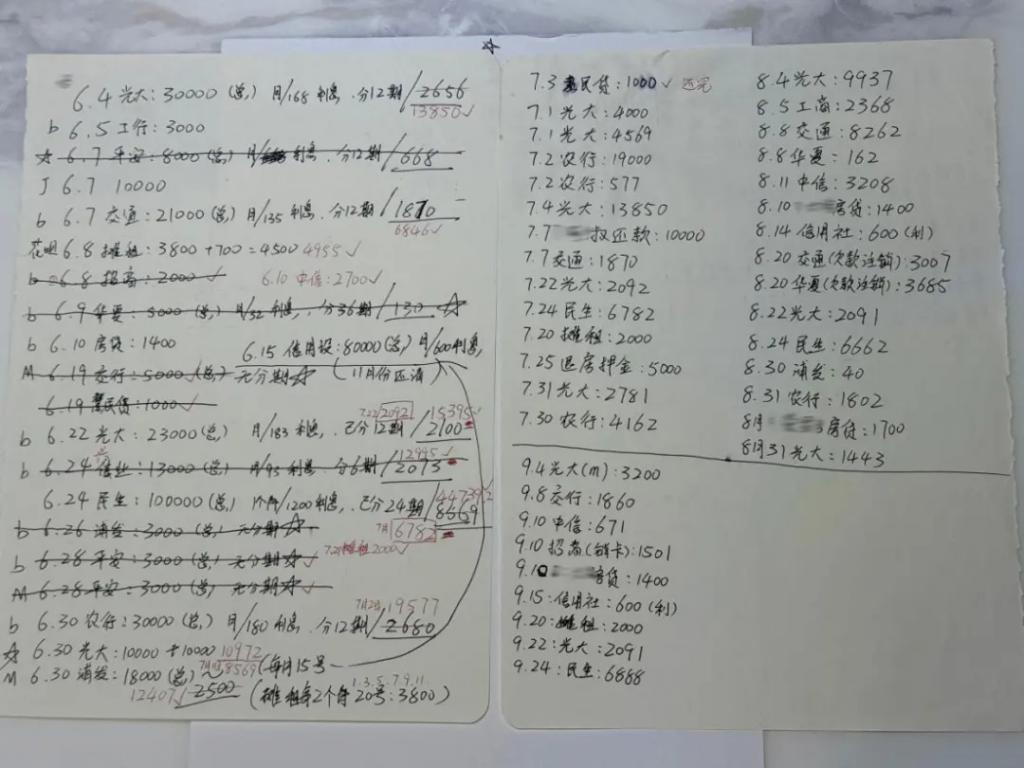 6.4 光大:30000(总) 月/168利息.分12期/2656
13850✓
b 6.5 工行:3000
☆ 6.7 平安:8000(总) 月/利息.分12期/668
J 6.7 10000
b 6.7 交通:21000(总) 月/135利息.分12期/1870
6846✓
花呗 6.8 摊租:3800+700=4500 4955✓
b 6.8 招商:2000✓ 6.10 中信:2700✓
b 6.9 华夏:5000(总) 月/32利息.分36期/150
b 6.10 房贷:1400 6.15 信用投:80000(总) 月/600利息,
M 6.19 交行:5000(总) 无分期☆(11月份还清)
6.19 惠民贷:1000✓
7.22/2092 15395✓
b 6.22 光大:23000(总) 月/183利息.已分12期/2100
12995✓
b 6.24 :13000(总) 月/95利息.分6期/2073
44739
6.24 民生:100000(总) 月/1200利息.已分24期/8669
b 6.26 浦发:3000(总) 无分期☆ 7月6782
7.20摊租2000✓
b 6.28 平安:3000(总) 无分期☆✓
M 6.28 平安:3000(总) 无分期☆✓
7月2号19577
b 6.30 农行:30000(总) 月/180利息.分12期/2680
☆ 6.30 光大:10000+10000 10972
M 6.30 浦发:18000(总) 8569(每月15号
1.3.5.7.9.11.
12407✓ 2500 (摊租每2个月20号:3800)
7.3 惠民贷:1000✓ 还完
7.1 光大:4000
7.1 光大:4569
7.2 农行:19000
7.2 农行:577
7.4 光大:13850
7.7 还款:10000
7.7 交通:1870
7.22 光大:2092
7.24 民生:6782
7.20 摊租:2000
7.25 退房押金:5000
7.31 光大:2781
7.30 农行:4162
8.4 光大:9937
8.5 工商:2368
8.8 交通:8262
8.8 华夏:162
8.11 中信:3208
8.10 房贷:1400
8.14 信用社:600(利)
8.20 交通(欠款注销):3007
8.20 华夏(欠款注销):3685
8.22 光大:2091
8.24 民生:6662
8.30 浦发:40
8.31 农行:1802
8月 房贷:1700
8月31 光大:1443
9.4 光大(m):3200
9.8 交行:1860
9.10 中信:671
9.10 招商(销卡):1501
9.10 房贷:1400
9.15:信用社:600(利)
9.20:摊租:2000
9.22:光大:2091
9.24:民生:6888